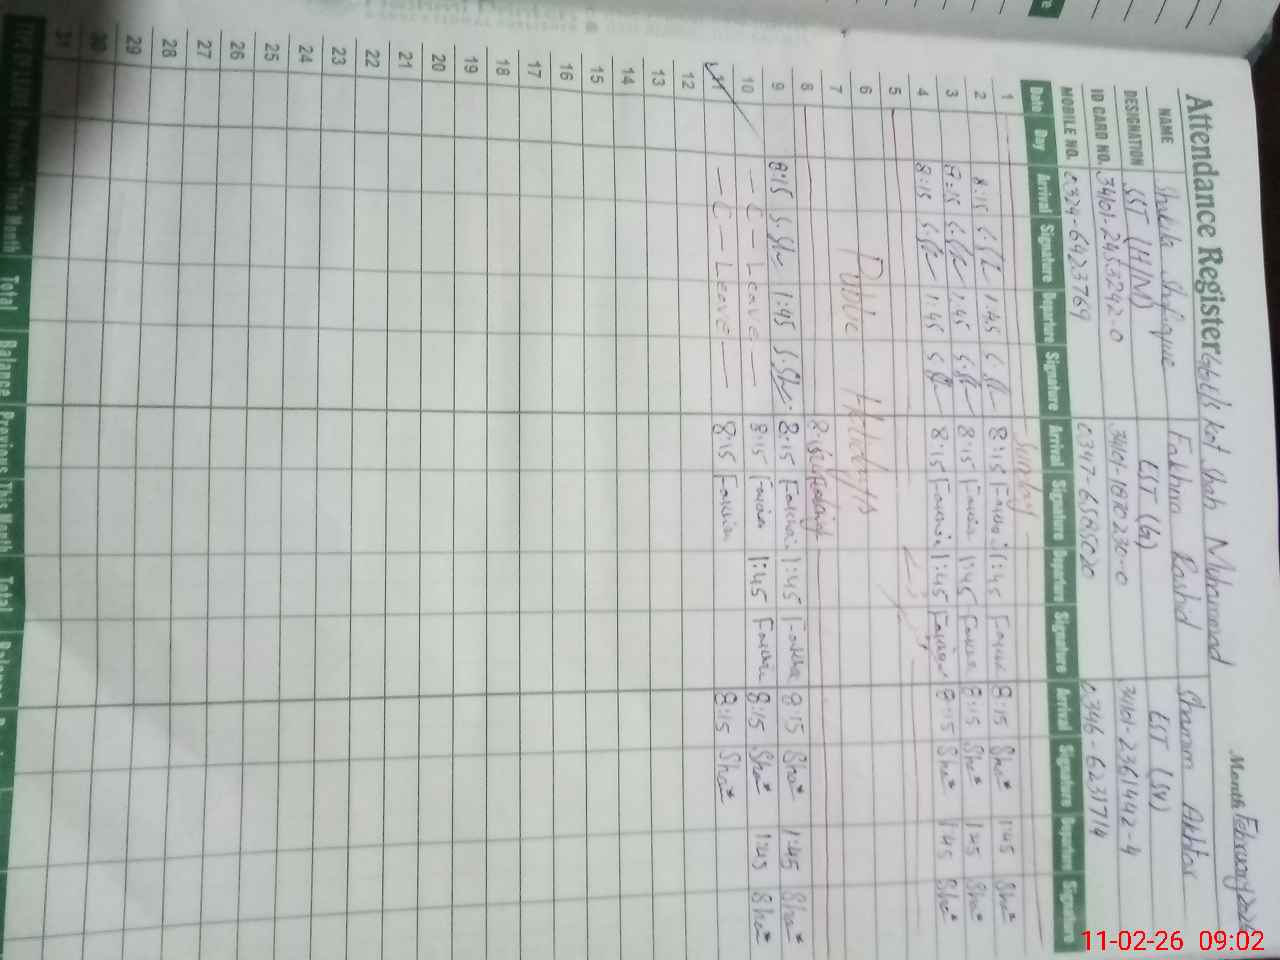 Attendance Register
Month February
NAME Shakila Shafique Fakhra Rashid Shamim Akhtar
DESIGNATION SST (H/M) EST (G) EST (SV)
ID CARD NO. 34101-2453242-0 34101-1870230-0 34101-2361442-4
MOBILE NO. 0324-6423769 0347-6585020 0346-6231714
Date Day Arrival Signature Departure Signature Arrival Signature Departure Signature Arrival Signature Departure Signature
1 Sunday
2 8:15 1:45 8:15 1:45 8:15 Sha* 1:45 Sha*
3 8:15 1:45 8:15 1:45 8:15 Sha* 1:45 Sha*
4 8:15 1:45 8:15 1:45 8:15 Sha* 1:45 Sha*
5
6 Public Holidays
7
8 Sunday
9 8:15 1:45 8:15 1:45 8:15 Sha* 1:45 Sha*
10 — C — Leave — 8:15 1:45 8:15 Sha* 1:45 Sha*
11 — C — Leave — 8:15 8:15 Sha*
12
13
14
15
16
17
18
19
20
21
22
23
24
25
26
27
28
29
30
31
Previous This Month Total Balance Previous This Month Total Balance
11-02-26 09:02